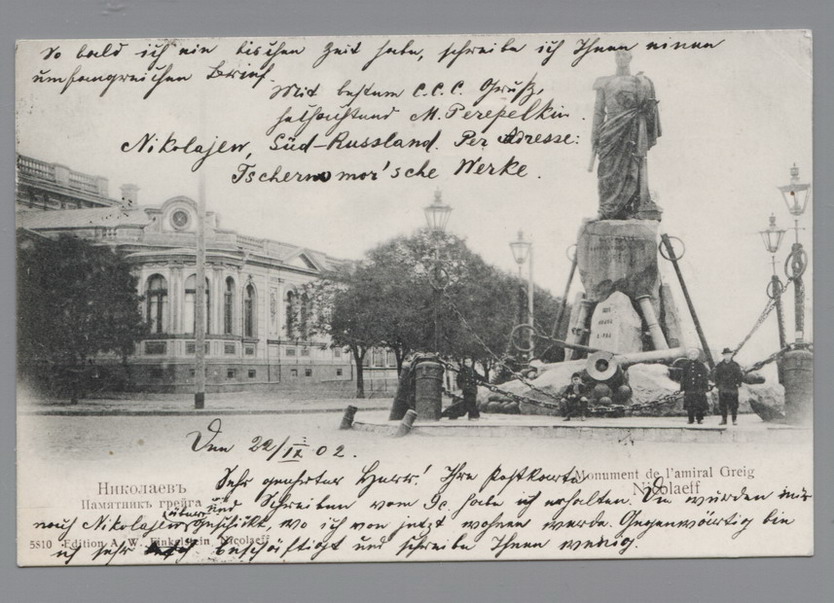 So bald ich ein bischen Zeit habe, schreibe ich Ihnen einen
umfangreichen Brief.
Mit bestem C.C.C. Gruß,
hochachtend M. Perepelkin.
Nikolajew, Süd-Russland. Per Adresse:
Tschernomor'sche Werke.
Den 22/IX 02.
Sehr geehrter Herr! Ihre Postkarte
Monument de l'amiral Greig
Nicolaeff
Николаевъ
Памятникъ грейга
und Schreiben vom 9. habe ich erhalten. Die wurden mir
nach Nikolajew geschickt, wo ich von jetzt wohnen werde. Gegenwärtig bin
ich sehr beschäftigt und schreibe Ihnen wenig.
5810 Edition A. W. Finkelstein, Nicolaeff